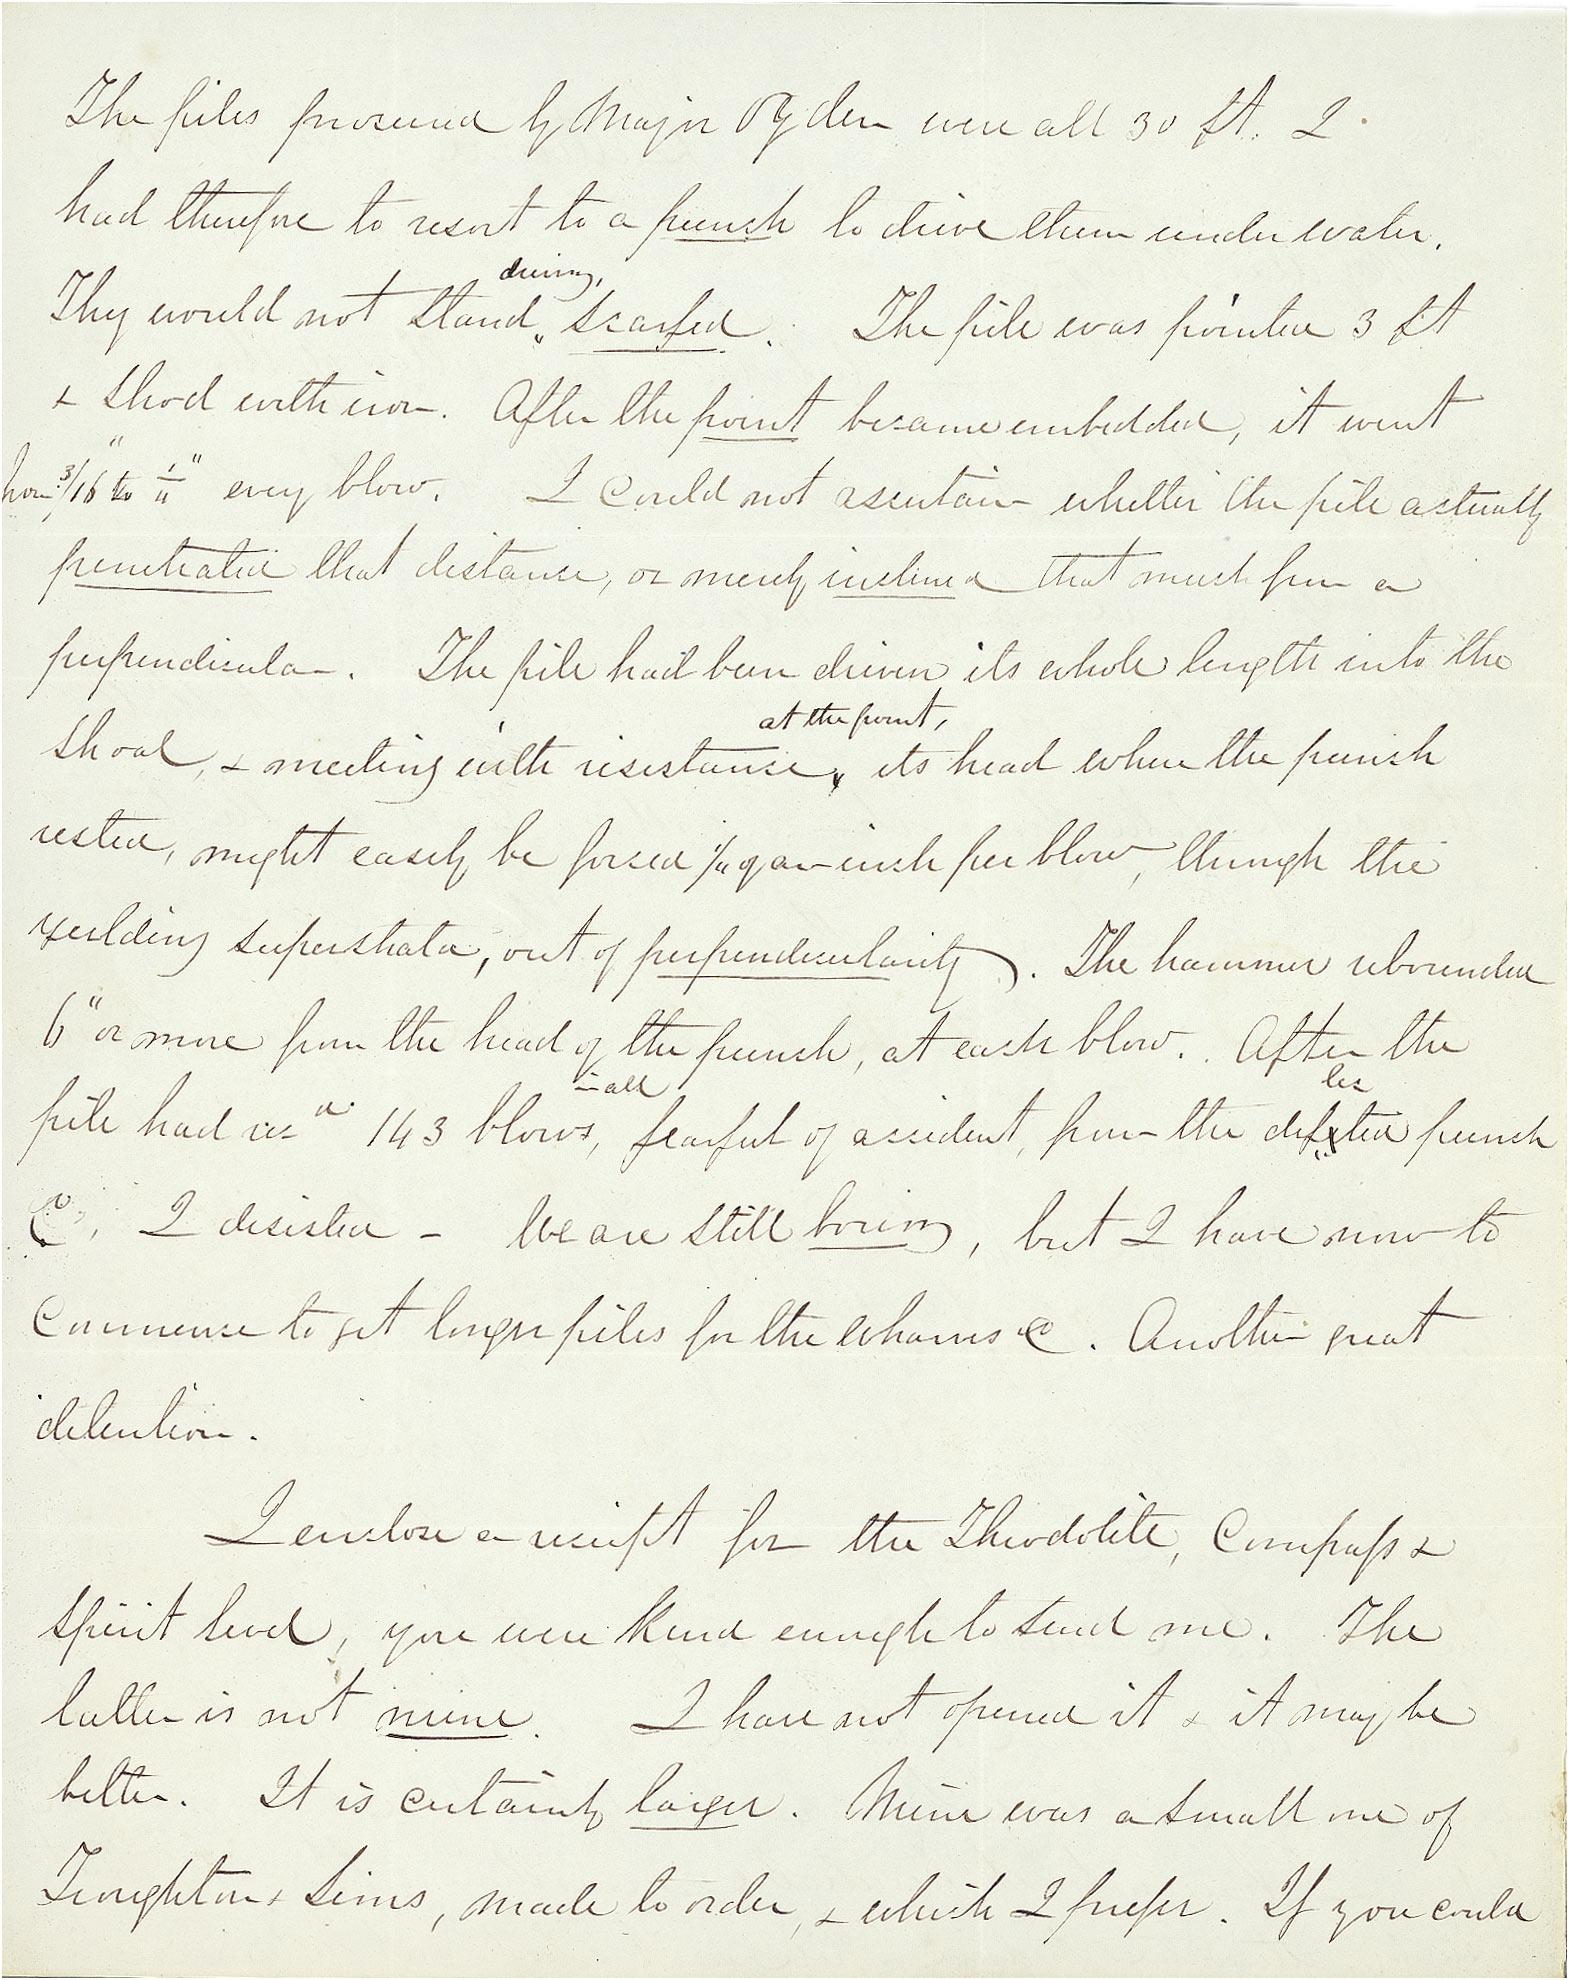 The piles procured by Major Ogden were all 30 ft. I
had therefore to resort to a punch to drive them under water.
They would not stand driving, scarfed. The pile was pointed 3 ft
& shod with iron. After the point became embedded, it went
from 3/16" to 1/4" every blow. I could not ascertain whether the pile actually
penetrated that distance, or merely inclined that much from a
perpendicular. The pile had been driven its whole length into the
shoal, & meeting with resistance at the point, its head where the punch
rested, might easily be forced 1/4 of an inch per blow, though the
yeilding superstrata, out of perpendicularity. The hammer rebounded
6" or more from the head of the punch, at each blow. After the
pile had recd 143 blows, in all fearful of accident, from the deflected punch
&c, I desisted - We are still boring, but I have now to
Commence to get longer piles for the wharves &c. Another great
detention.
I enclose a receipt for the Theodolite, Compass &
Spirit level, you were kind enough to send me. The
latter is not mine. I have not opened it & it may be
better. It is certainly larger. Mine was a small one of
Troughton & Sims, made to order, & which I prefer. If you could